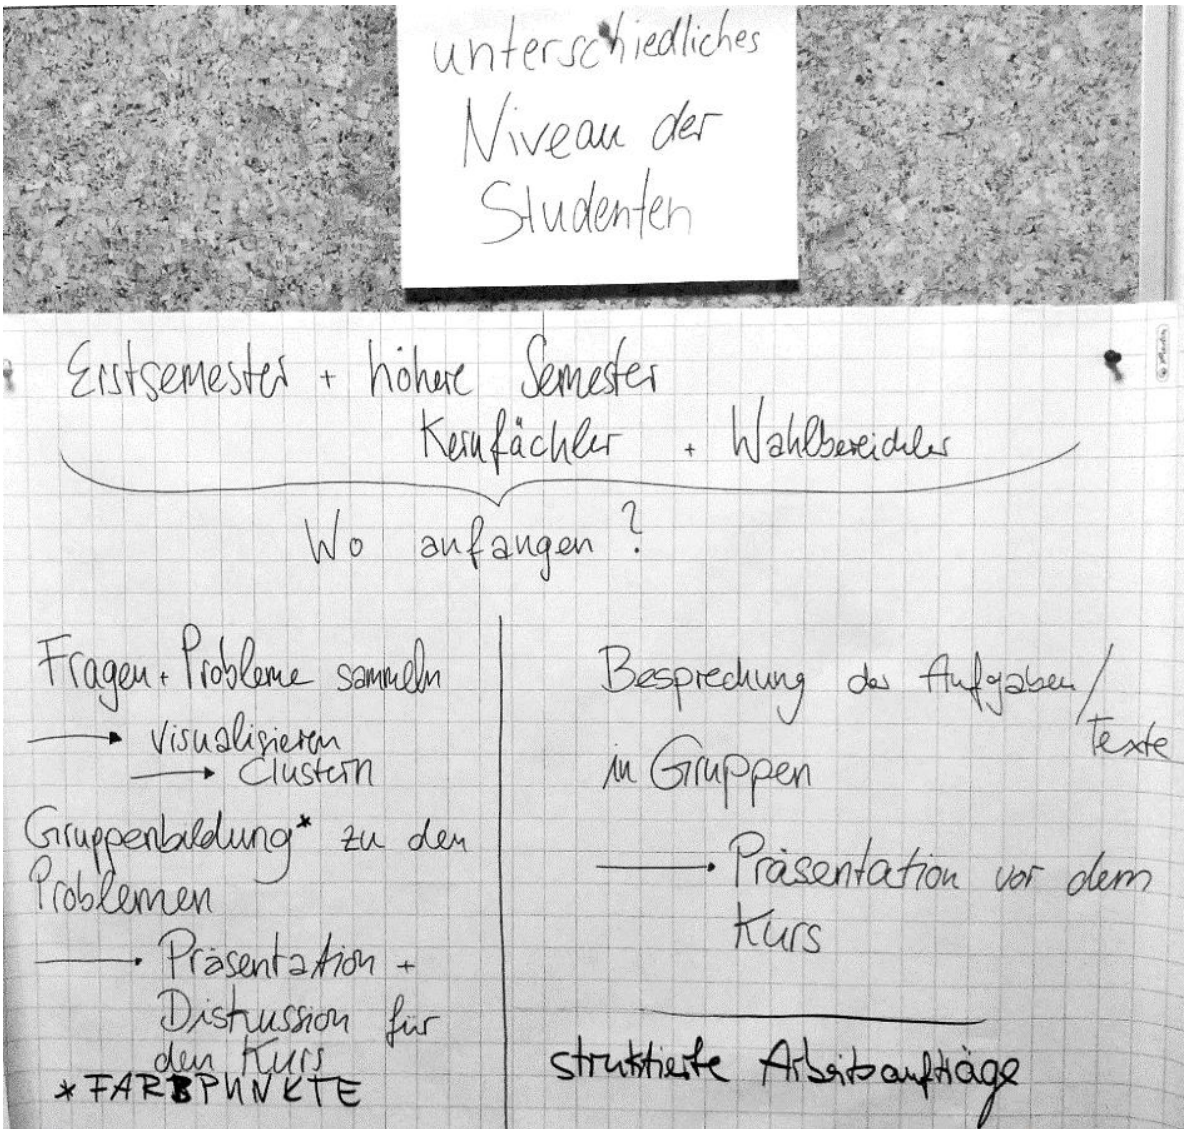 unterschiedliches
Niveau der
Studenten
Erstsemester + höhere Semester
Kernfächler + Wahlbereichler
Wo anfangen?
Fragen + Probleme sammeln
→ visualisieren
→ Clustern
Gruppenbildung* zu den
Problemen
→ Präsentation +
Diskussion für
den Kurs
*FARBPUNKTE
Besprechung der Aufgaben/
Texte
in Gruppen
→ Präsentation vor dem
Kurs
struktierte Arbeitsaufträge